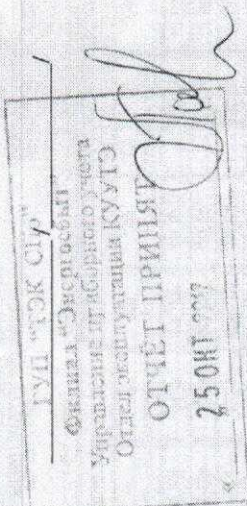 ГУП "ТЭК СПб"
Филиал "Энергосбыт"
Управление приборного учета
Отдел эксплуатации КУУТЭ
ОТЧЁТ ПРИНЯТ
25 ОКТ 2017
«